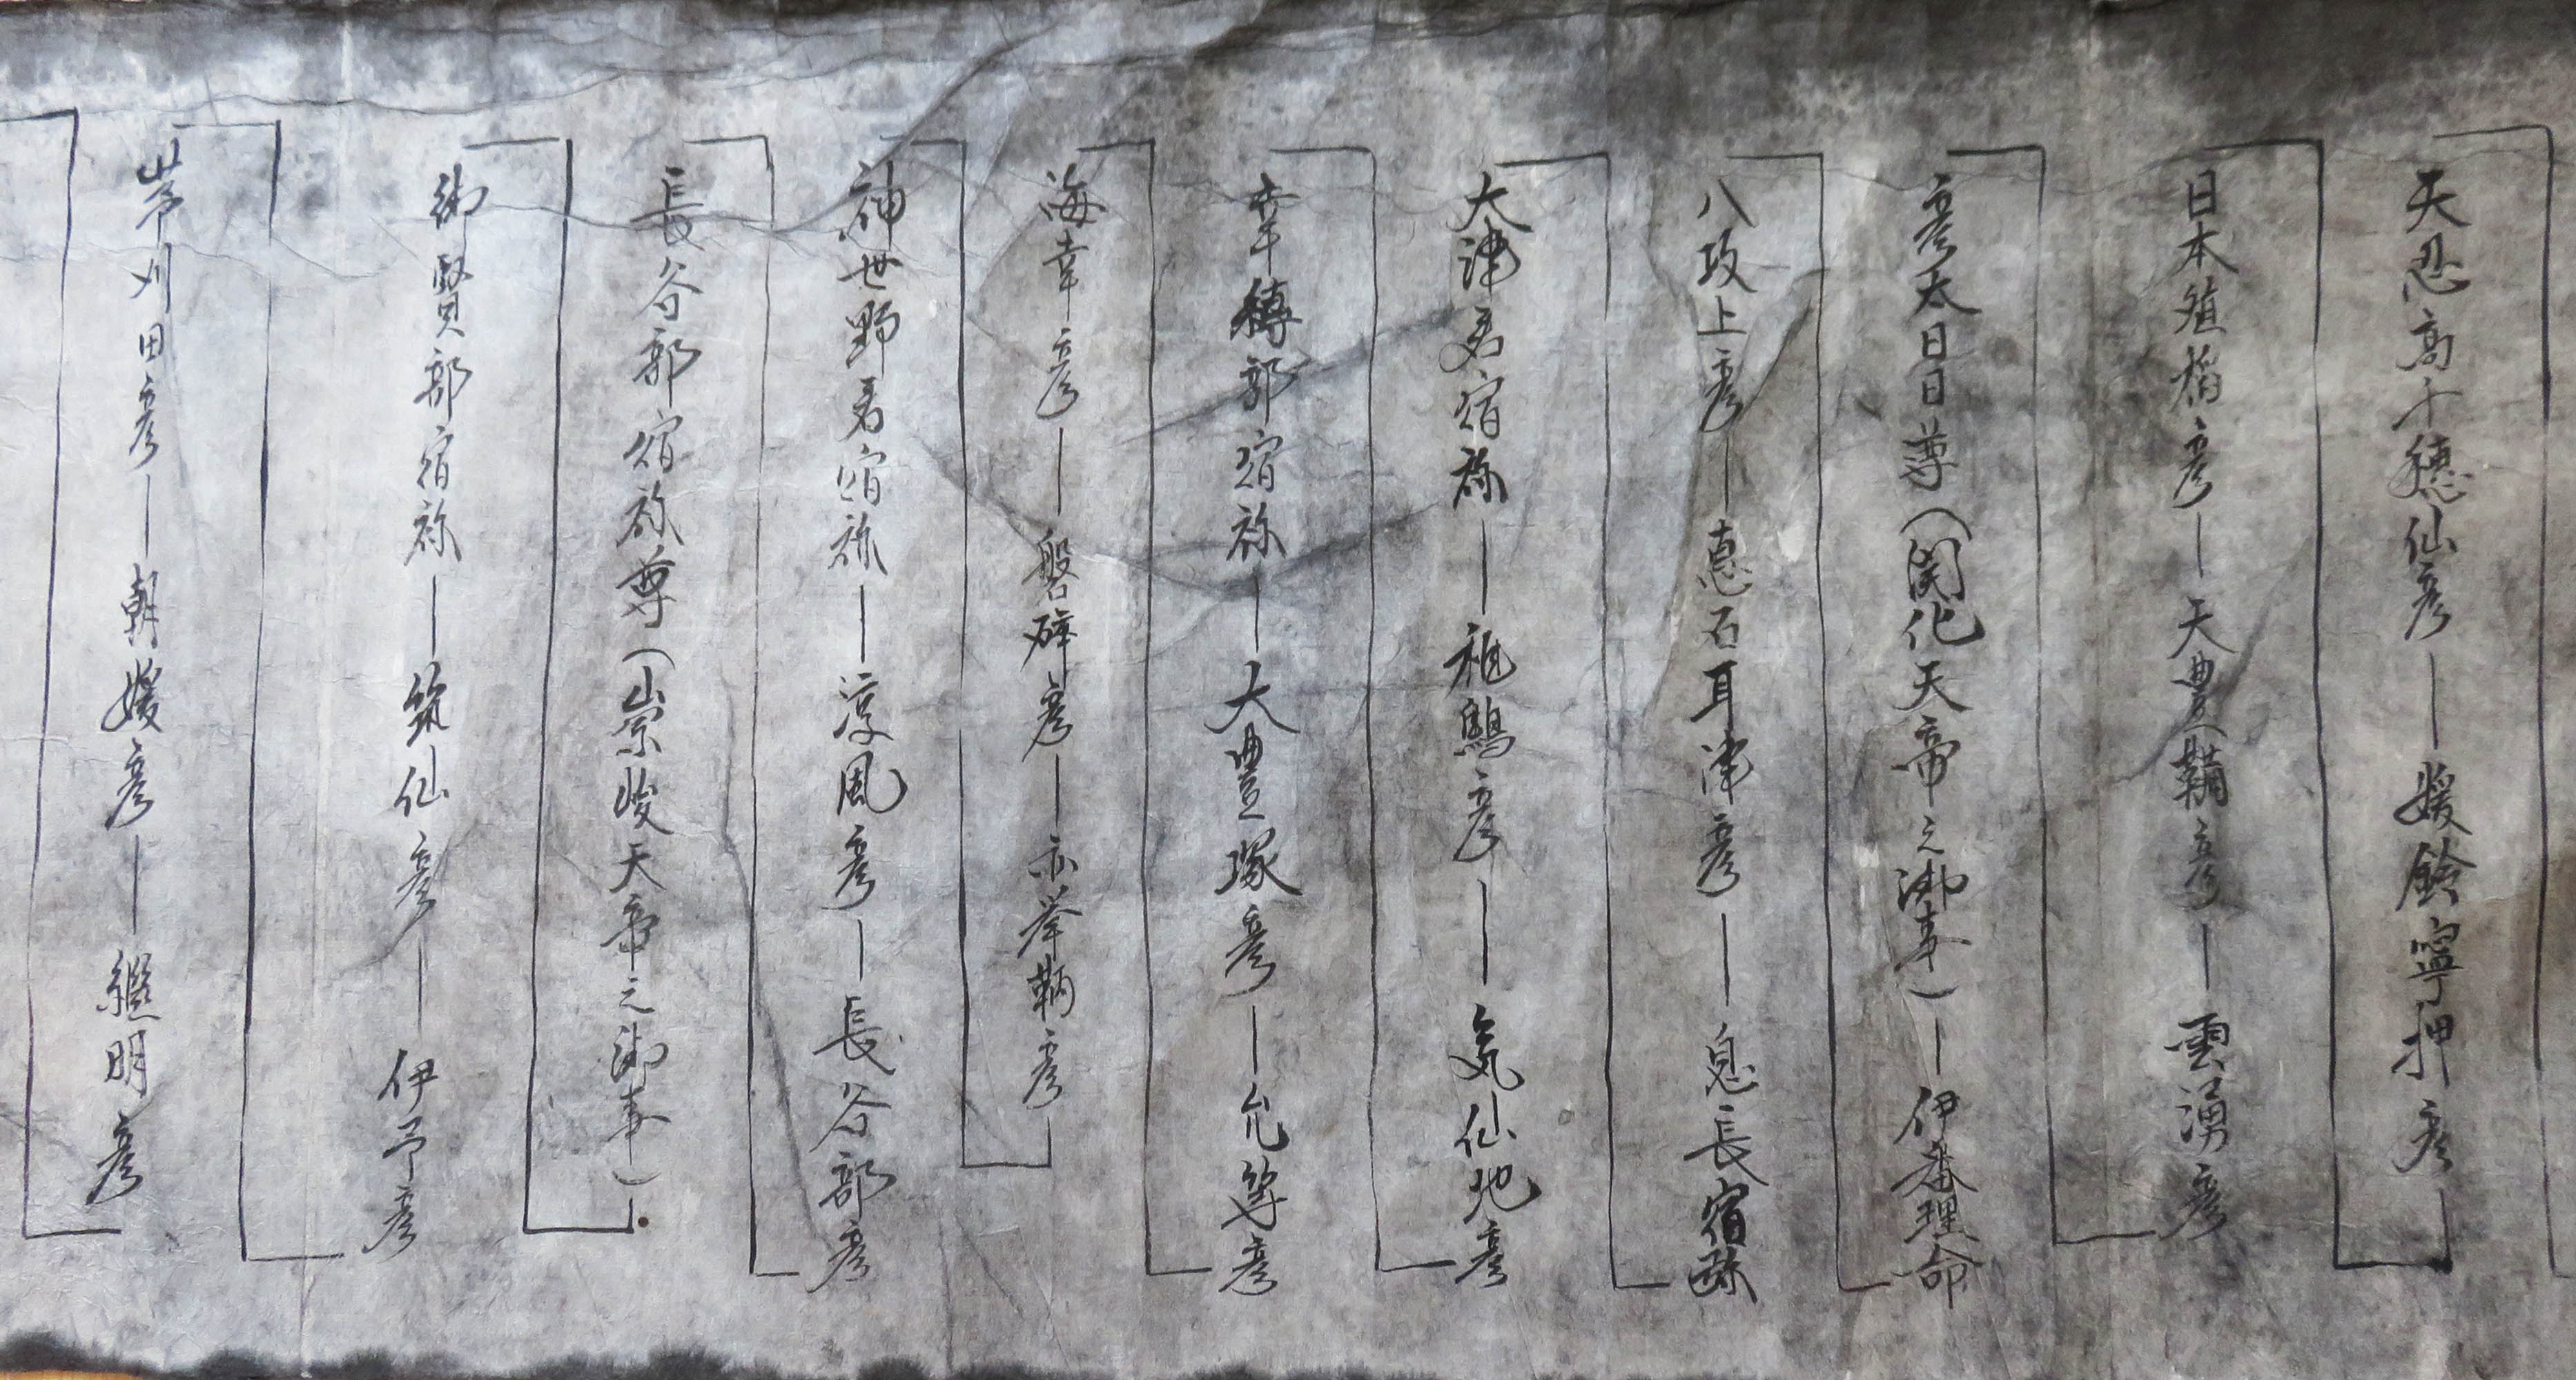 天忍高千穂仙彦―媛鈴寧押彦
日本殖稲彦―天豊鞴彦―雲湧彦
彦太日日尊(開化天帝之御事)―伊番理命
八攻上彦―恵石耳津彦―息長宿祢
大津君宿祢―祖鵄彦―気仙地彦
幸縳部宿祢―大豊塚彦―允等彦
海幸彦―磐碑彦―亦挙鞆彦
神世野君宿祢―淳風彦―長谷部彦
長谷部宿祢尊(崇峻天帝之御事)
御賢部宿祢―筑仙彦―伊予彦
刈田彦―朝媛彦―継明彦